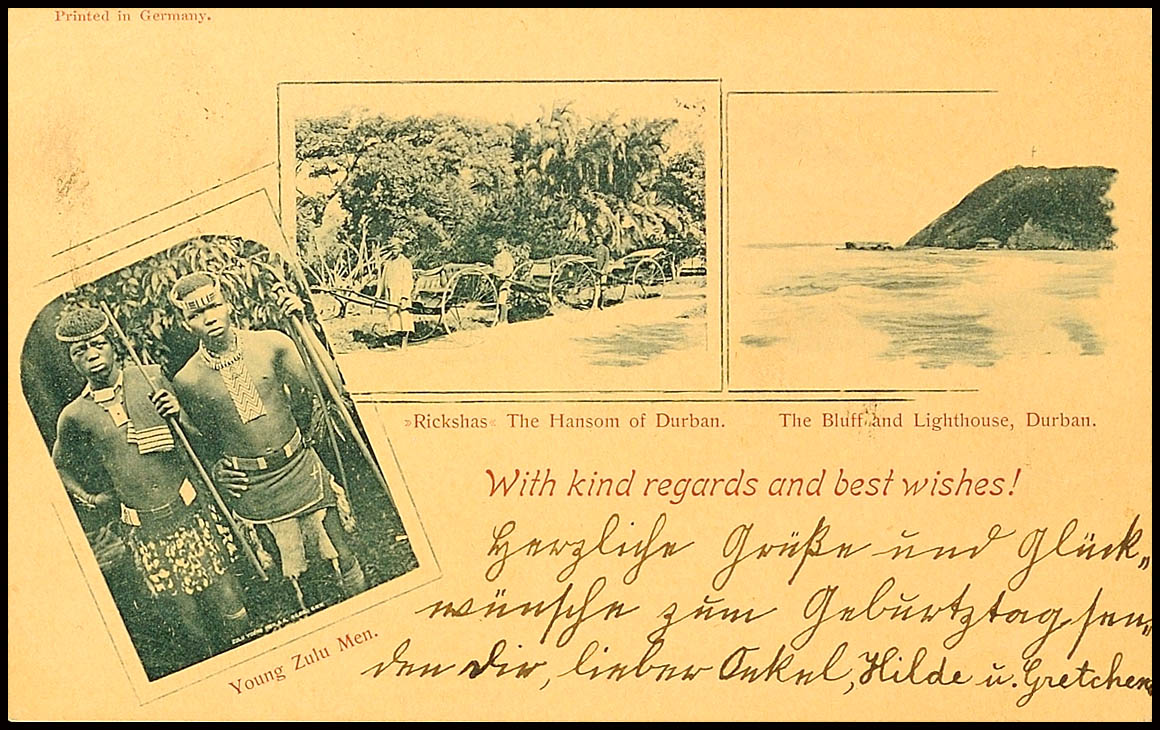 Printed in Germany.
»Rickshas« The Hansom of Durban.
The Bluff and Lighthouse, Durban.
Young Zulu Men.
With kind regards and best wishes!
Herzliche Grüße und Glück„
wünsche zum Geburtztag sen„
den Dir, lieber Onkel, Hilde u. Gretchen.